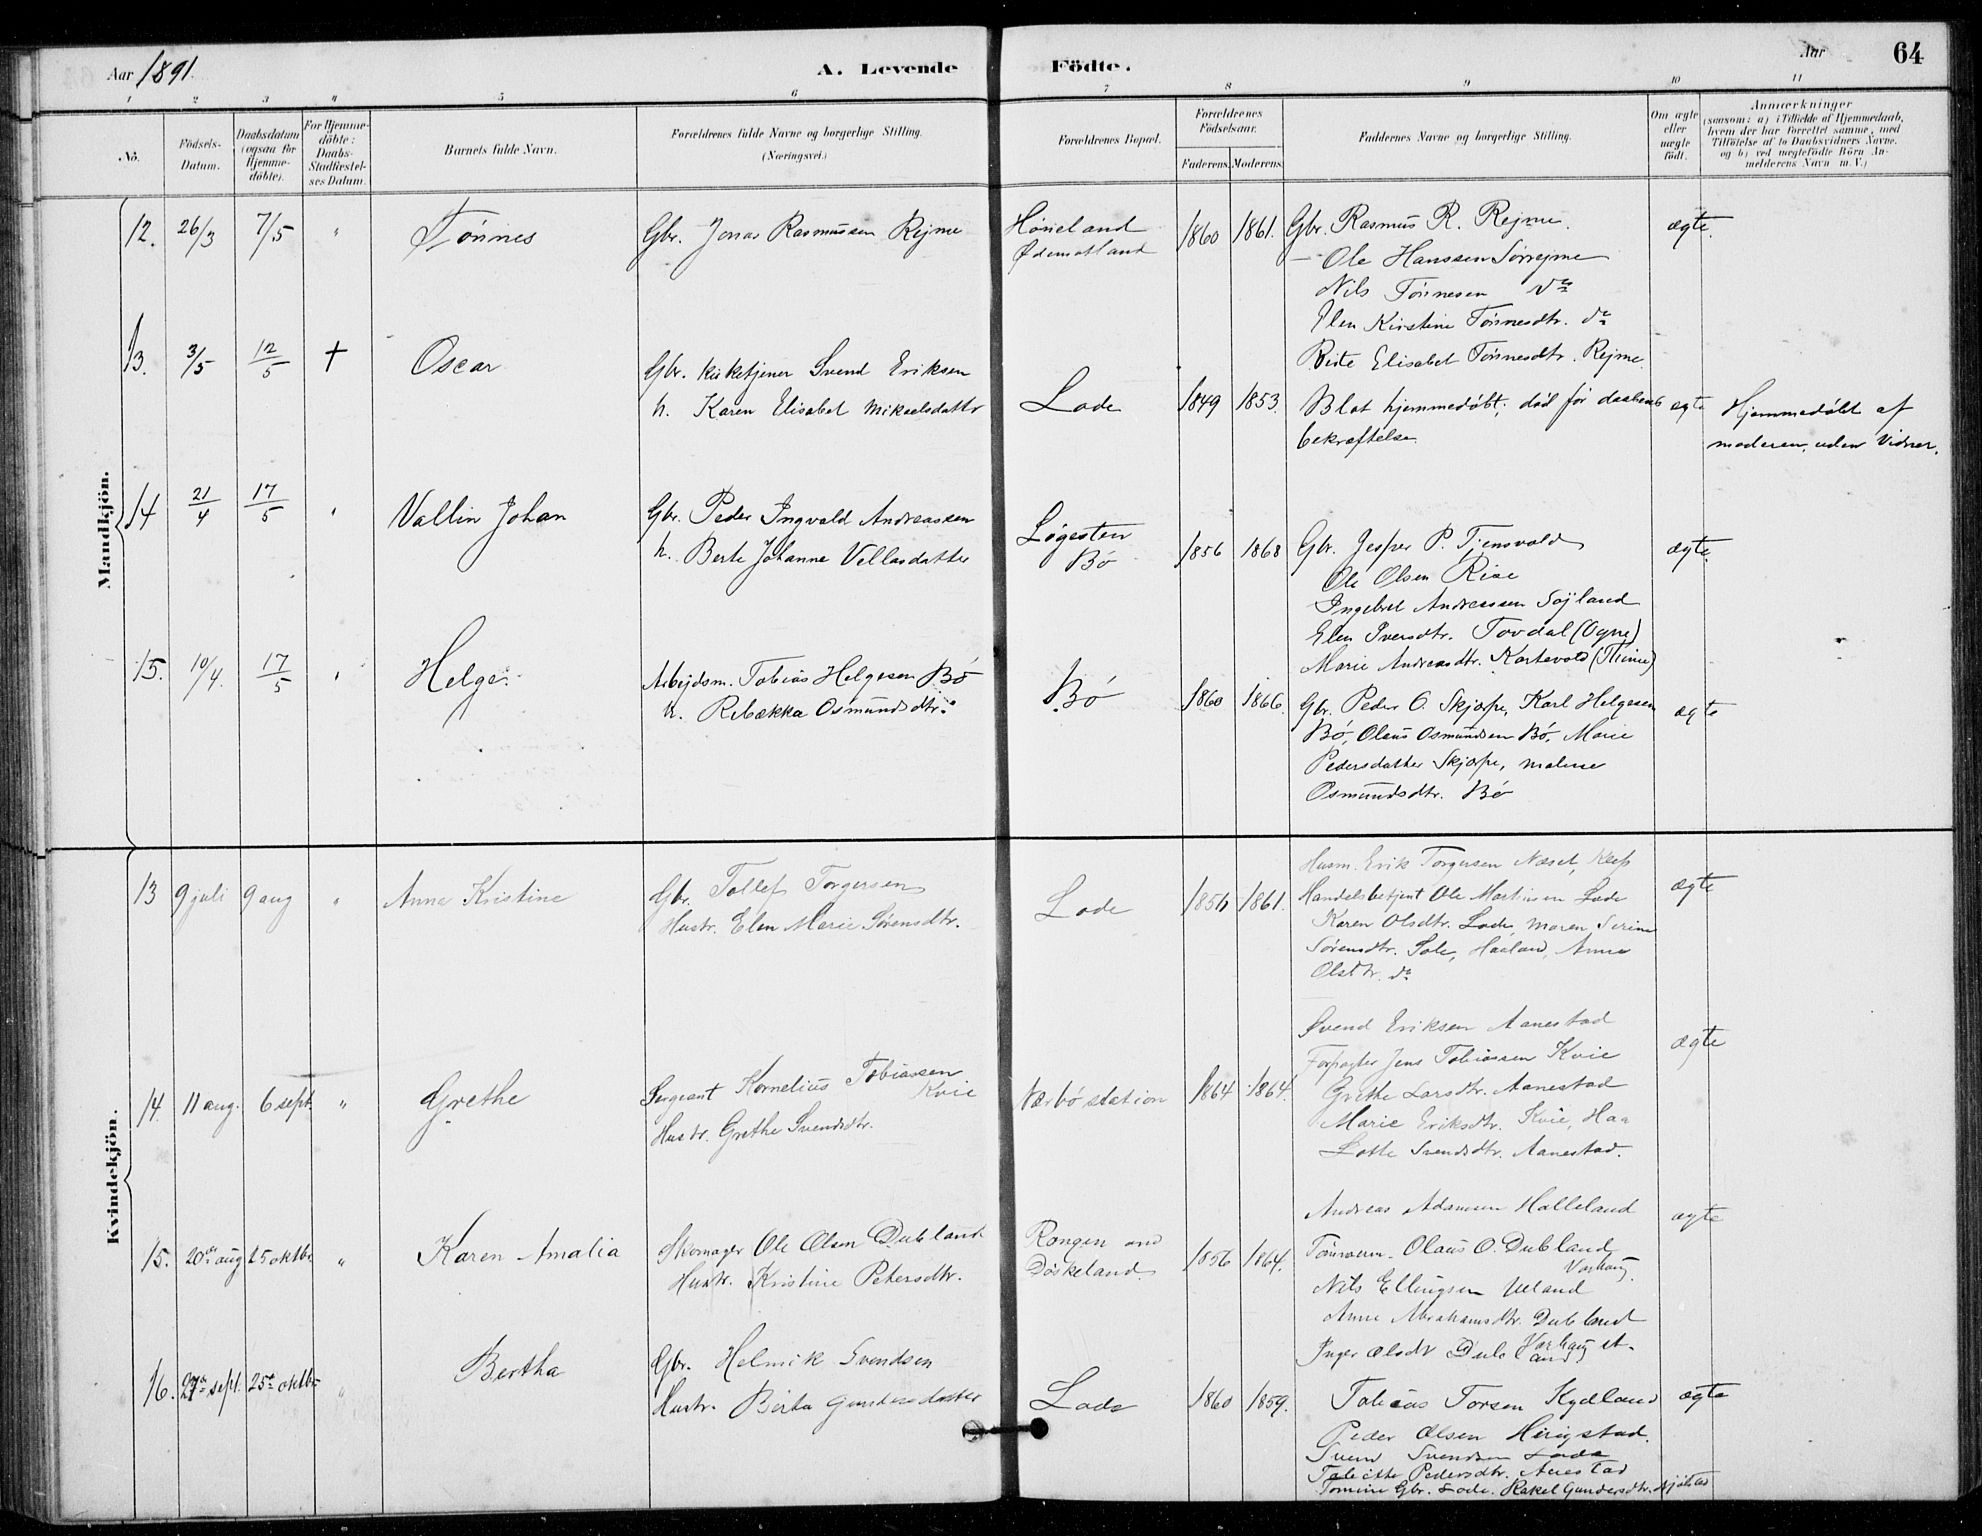 Aar 1891.
A. Levende Födte.
Aar
64
1 2 3 4 5 6 7 8 9 10 11
No.
Födsels-Datum.
Daabsdatum (ogsaa for Hjemme-döbte).
For Hjemme-döbte: Daabs-Stadfæstel-ses Datum.
Barnets fulde Navn.
Forældrenes fulde Navne og borgerlige Stilling.
(Næringsvei.)
Forældrenes Bopæl.
Forældrenes Födselsaar.
Faderens. Moderens.
Faddernes Navne og borgerlige Stilling.
Om ægte eller uægte födt.
Anmærkninger
(saasom: a) i Tilfælde af Hjemmedaab,
hvem der har forrettet samme, med
Tilföielse af to Daabsvidners Navne.
og b) ved uægtefödte Börn An-
melderens Navn m. V.)
Mandkjön.
12. 26/3 7/5 " Tönnes
Gbr. Jonas Rasmussen Rejme
Høieland
Ødemotland
1860 1861.
Gbr. Rasmus R. Rejme.
— Ole Hanssen Sørrejme
Nils Tönnesen do
Elen Kirstine Tönnesdtr. do
Berte Elisabet Tönnesdtr. Rejme
ægte.
13. 3/5 12/5 + Oscar
Gbr. kirketjener Svend Eriksen
h. Karen Elisabet Mikaelsdattr
Lode
1849 1853.
Blot hjemmedøbt; død før daabens
bekræftelse
ægte
Hjemmedøbt af
moderen, uden Vidner.
14 21/4 17/5 " Vallin Johan
Gbr. Peder Ingvald Andreassen
h. Berte Johanne Vellasdatter
Løgesten
Bö
1856 1868
Gbr. Jesper P. Tjensvold
Ole Olsen Risa
Ingebret Andreassen Søyland
Elen Iversdtr. Tovdal (Ogne)
Marie Andreasdtr. Kartevold (Thime)
ægte.
15. 10/4. 17/5 " Helge.
Arbejdsm. Tobias Helgesen Bö
h. Rebækka Osmundsdtr.
Bö
1860 1866.
Gbr. Peder O. Skjærpe, Karl Helgesen
Bö, Olaus Osmundsen Bö. Marie
Pedersdatter Skjærpe, Malene
Osmundsdtr. Bö
ægte
Kvindekjön.
13 9 juli 9 aug " Anna Kristine
Gbr. Tollef Torgersen
Hustr. Elen Marie Sørensdtr.
Lode
1856 1861.
Husm. Erik Torgersen Næset, Klep
Handelsbetjent Ole Martinsen Lode
Karen Olsdtr. Lode, Maren Serine
Sørensdtr. Sole, Haaland, Anna
Olsdtr. do
ægte
14. 11 aug. 6 sept. " Grethe
Sergeant Kornelius Tobiassen
Kvie
Hustr. Grethe Svendsdtr.
Nærbø station
1864 1864.
Svend Eriksen Aanestad
Forpagter Jens Tobiassen Kvie
Grethe Larsdtr. Aanestad
Marie Eriksdtr. Kvie, Haa
Lotte Svendsdtr. Aanestad.
ægte
15. 20de aug 25 oktbr. " Karen Amalia
Skomager Ole Olsen Dubland
Hustr. Kristine Petersdtr.
Rongen
Døskeland
1856 1864.
Andreas Adamsen Halleland
Olaus O. Dubland
Varhaug.
Nils Ellingsen Ueland
Anne Abrahamsdtr. Dubland
Varhaug st.
Inger Olsdt Dubland
ægte
16. 27de sept. 25de oktbr " Bertha
Gbr. Helmik Svendsen
Hustr. Berta Gundersdatter
Lode
1860 1859.
Tobias Torsen Kydland
Peder Olsen Hirigstad.
Svend Svendsen Lode
Tabitte Pedersdtr. Anestad
Tomine Gbr. Lode. Rakel Gundersdtr.
ægte